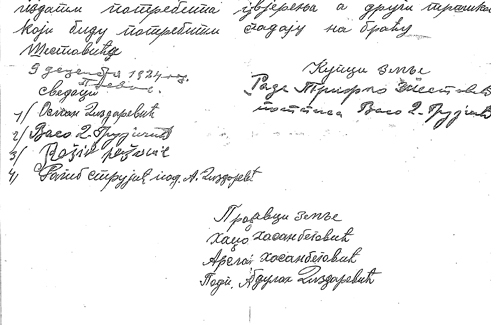 подати потребита увјерења а други трошкови
који буду потребити падају на браћу
Шестовића
9 децембра 1924 год.
Сведоци
1/ Осман Диздаревић
2/ Васо Д. Грујичић
3/
4/ Рагиб под. А. Диздаревић
Купци земље
Раде Трифко Шестовић
потписа Васо Д. Грујичић
Продавци земље
Хацо Хасанбеговић
Арслан Хасанбеговић
Подп. Абдулах Диздаревић